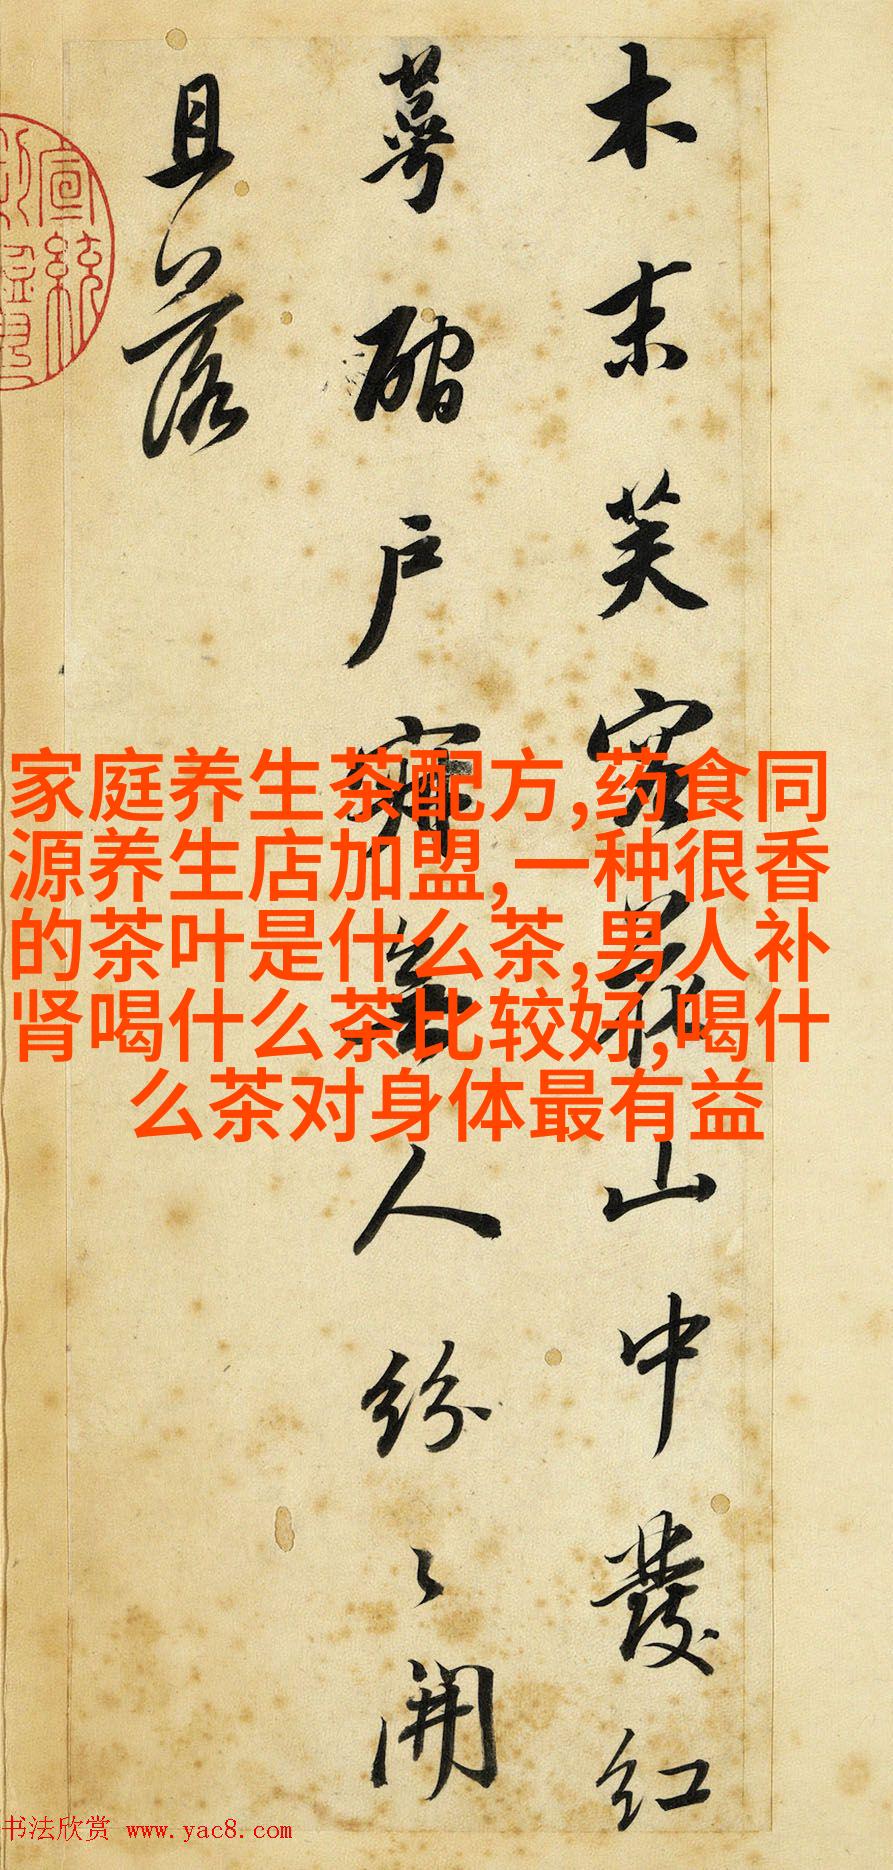 木末芙容花山中發紅
萼磵戶寂無人紛々開
且落
宣統
家庭养生茶配方,药食同
源养生店加盟,一种很香
的茶叶是什么茶,男人补
肾喝什么茶比较好,喝什
么茶对身体最有益
书法欣赏 www.yac8.com